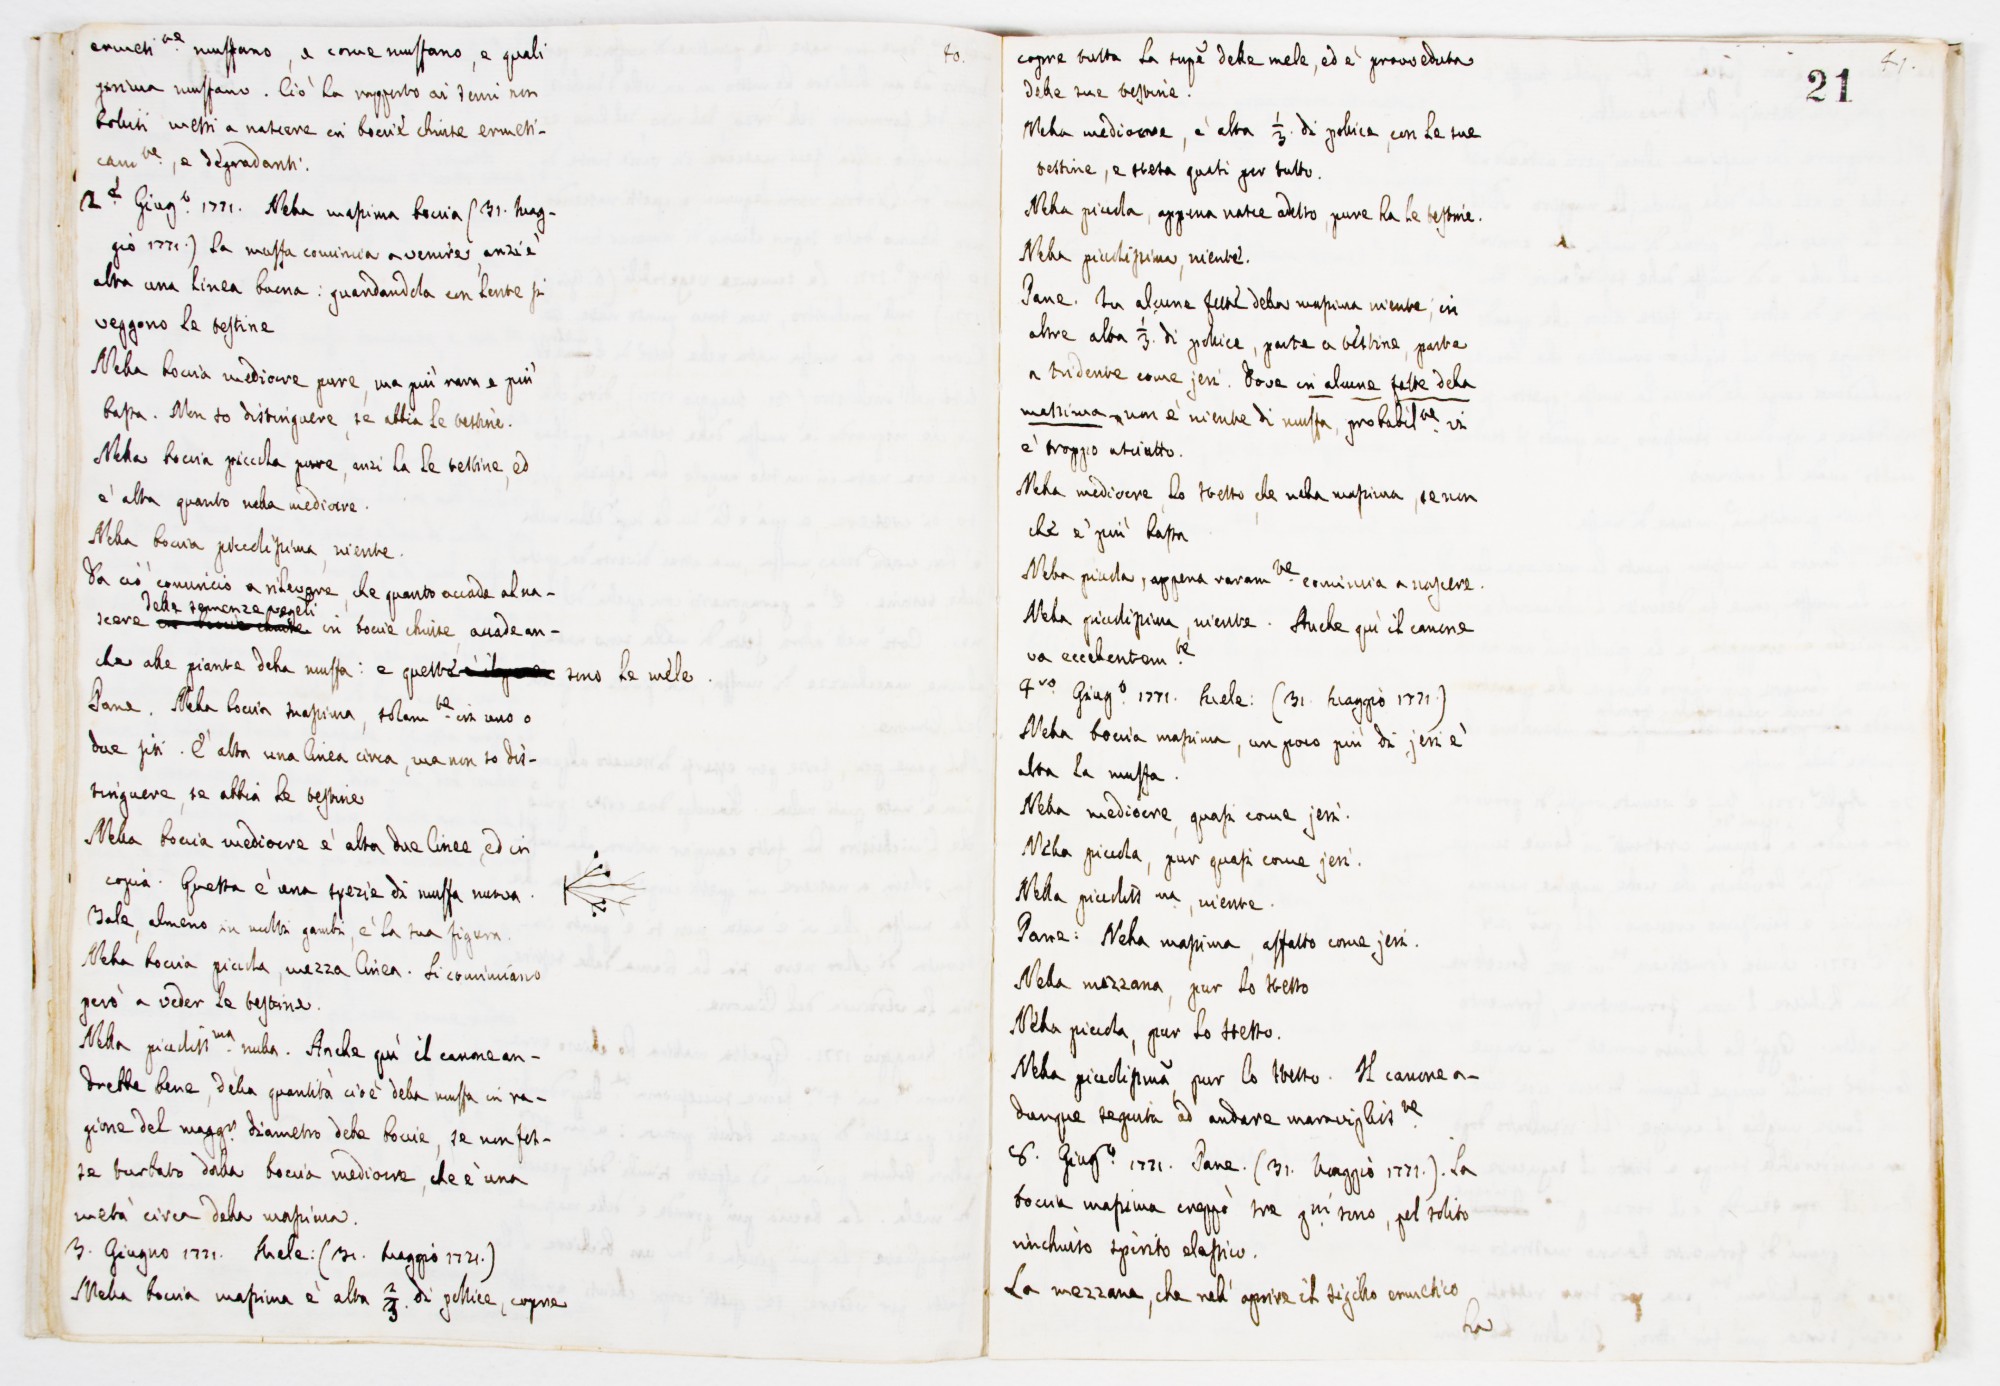 40.
ermeti.ve muffano, e come muffano, e quali
prima muffano. Ciò ha rapporto ai semi non
boliti messi a nascere in boccie chiuse ermeti-
cam.te, e degradanti.
2.d Giug.o 1771. Nella massima boccia (31. Mag-
gio 1771.) la muffa comincia a venire, anzi è
alta una linea buona: guardandola con lente si
veggono le testine
Nella boccia mediocre pure, ma più rara e più
bassa. Non so distinguere, se abbia le testine.
Nella boccia piccola pure, anzi ha le testine, ed
è alta quanto nella mediocre.
Nella boccia piccolissima, niente.
Da ciò comincio a rilevare, che quanto accade al na-
delle semenze vegeli
scere in boccie chiuse in boccie chiuse, accade an-
che alle piante della muffa: e queste sono le mele.
Pane. Nella boccia massima, solam.te in uno o
due siti. È alta una linea circa, ma non so dis-
tinguere, se abbia le testine
Nella boccia mediocre è alta due linee, ed in
copia. Questa è una spezie di muffa nuova.
Tale, almeno in molti gambi, è la sua figura.
Nella boccia piccola, mezza linea. Si cominciano
però a veder le testine.
Nella piccoliss.ma nulla. Anche quì il canone an-
drebbe bene, della quantità cioè della muffa in ra-
gione del magg.r diametro delle boccie, se non fos-
se turbato dalla boccia mediocre, che è una
metà circa della massima.
3. Giugno 1771. Mele: (31. Maggio 1771.)
Nella boccia massima è alta 2/3. di pollice, copre
41.
21
copre tutta la supẽ delle mele, ed è provveduta
delle sue testine.
Nella mediocre, è alta 1/3. di pollice, con le sue
testine, e stesa quasi per tutto.
Nella piccola, appena nasce adesso, pure ha le testine.
Nella piccolissima, niente.
Pane. In alcune fette della massima niente; in
altre alta 1/3. di pollice, parte a testine, parte
a tridente come jeri. Dove in alcune fette della
massima non è niente di muffa, probabil.te vi
è troppo asciutto.
Nella mediocre, lo stesso, che nella massima, se non
che è più bassa
Nella piccola, appena raram.te comincia a nascere.
Nella piccolissima, niente. Anche quì il canone
va eccellentem.te
4.to Giug.o 1771. Mele: (31. Maggio 1771.)
Nella boccia massima, un poco più di jeri è
alta la muffa.
Nella mediocre, quasi come jeri.
Nella piccola, pur quasi come jeri.
Nella piccoliss.ma, niente.
Pane: Nella massima, affatto come jeri.
Nella mezzana, pur lo stesso
Nella piccola, pur lo stesso.
Nella piccolissimã, pur lo stesso. Il canone a-
dunque seguita ad andare maraviglios.te
8. Giug.o 1771. Pane. (31. Maggio 1771.). La
boccia massima creppò tre gni sono, pel solito
rinchiuso spirito elastico.
La mezzana, che nell'aprire il sigillo ermetico
ha